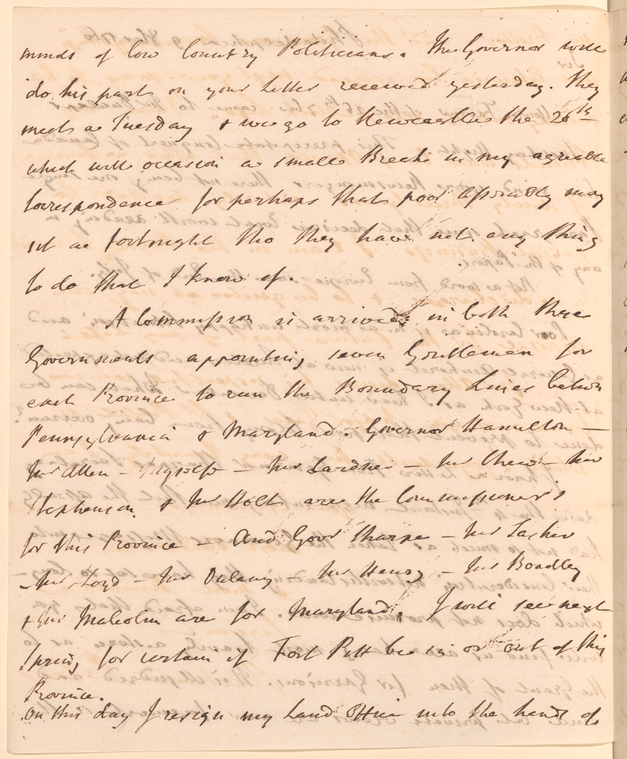 minds of low Country Politicians. The Governor will
do his part on your Letter received yesterday. They
meet a Tuesday & we go to Newcastle the 26th
which will occasion a small Breck in my agreable
Correspondence for perhaps that poor Assembly may
sit a fortnight tho they have not any thing
to do that I know of.
A Commission is arrived in both these
Governments appointing seven Gentlemen for
each Province to run the Boundary Lines between
Pennsylvania & Maryland. Governor Hamilton –
Mr Allen – myself – Mr Lardner – Mr Chew – Mr
Stephenson & Mr Holt are the Commissioners
for this Province – And Govr Sharpe – Mr Tasker
– Mr Loyd – Mr Dulany – Mr Henry – Mr Boadley
& Mr Malcolm are for Maryland, I will see next
Spring for certain if Fort Pitt be in or out of this
Province.
On this day I resign my Land Office into the hands of